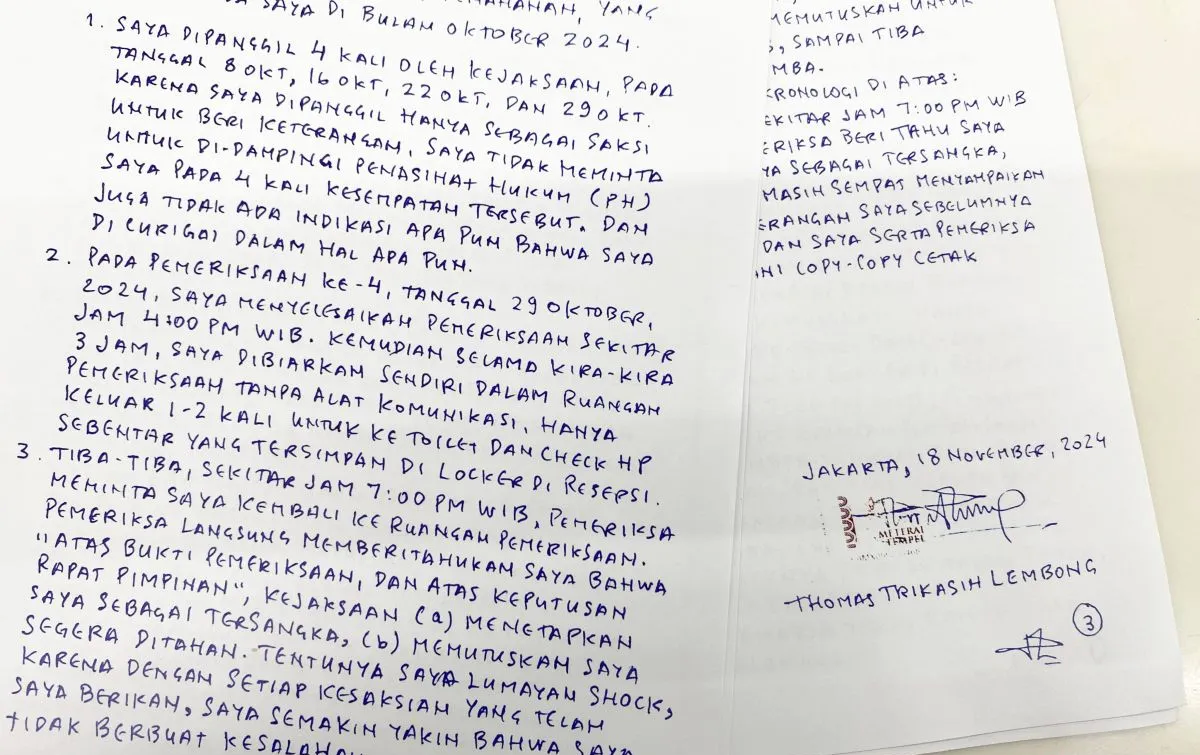 YANG
SAYA DI BULAN OKTOBER 2024.
1. SAYA DIPANGGIL 4 KALI OLEH KEJAKSAAN, PADA
TANGGAL 8 OKT, 16 OKT, 22 OKT, DAN 29 OKT.
KARENA SAYA DIPANGGIL HANYA SEBAGAI SAKSI
UNTUK BERI KETERANGAN, SAYA TIDAK MEMINTA
UNTUK DI-DAMPINGI PENASIHAT HUKUM (PH)
SAYA PADA 4 KALI KESEMPATAN TERSEBUT. DAN
JUGA TIDAK ADA INDIKASI APA PUN BAHWA SAYA
DI CURIGAI DALAM HAL APA PUN.
2. PADA PEMERIKSAAN KE-4, TANGGAL 29 OKTOBER,
2024, SAYA MENYELESAIKAN PEMERIKSAAN SEKITAR
JAM 4:00 PM WIB. KEMUDIAN SELAMA KIRA-KIRA
3 JAM, SAYA DIBIARKAN SENDIRI DALAM RUANGAN
PEMERIKSAAN TANPA ALAT KOMUNIKASI, HANYA
KELUAR 1-2 KALI UNTUK KE TOILET DAN CHECK HP
SEBENTAR YANG TERSIMPAN DI LOCKER DI RESEPSI.
3. TIBA-TIBA, SEKITAR JAM 7:00 PM WIB, PEMERIKSA
MEMINTA SAYA KEMBALI KE RUANGAN PEMERIKSAAN.
PEMERIKSA LANGSUNG MEMBERITAHUKAN SAYA BAHWA
"ATAS BUKTI PEMERIKSAAN, DAN ATAS KEPUTUSAN
RAPAT PIMPINAN", KEJAKSAAN (a) MENETAPKAN
SAYA SEBAGAI TERSANGKA, (b) MEMUTUSKAN SAYA
SEGERA DITAHAN. TENTUNYA SAYA LUMAYAN SHOCK,
KARENA DENGAN SETIAP KESAKSIAN YANG TELAH
SAYA BERIKAN, SAYA SEMAKIN YAKIN BAHWA SAYA
TIDAK BERBUAT KESALAHAN
EMUTUSKAN UNTUK
, SAMPAI TIBA
MBA.
KRONOLOGI DI ATAS:
EKITAR JAM 7:00 PM WIB
ERIKSA BERI TAHU SAYA
YA SEBAGAI TERSANGKA,
MASIH SEMPAT MENYAMPAIKAN
ERANGAN SAYA SEBELUMNYA
DAN SAYA SERTA PEMERIKSA
NI COPY-COPY CETAK
JAKARTA, 18 NOVEMBER, 2024
METERAI
TEMPEL
THOMAS TRIKASIH LEMBONG
3